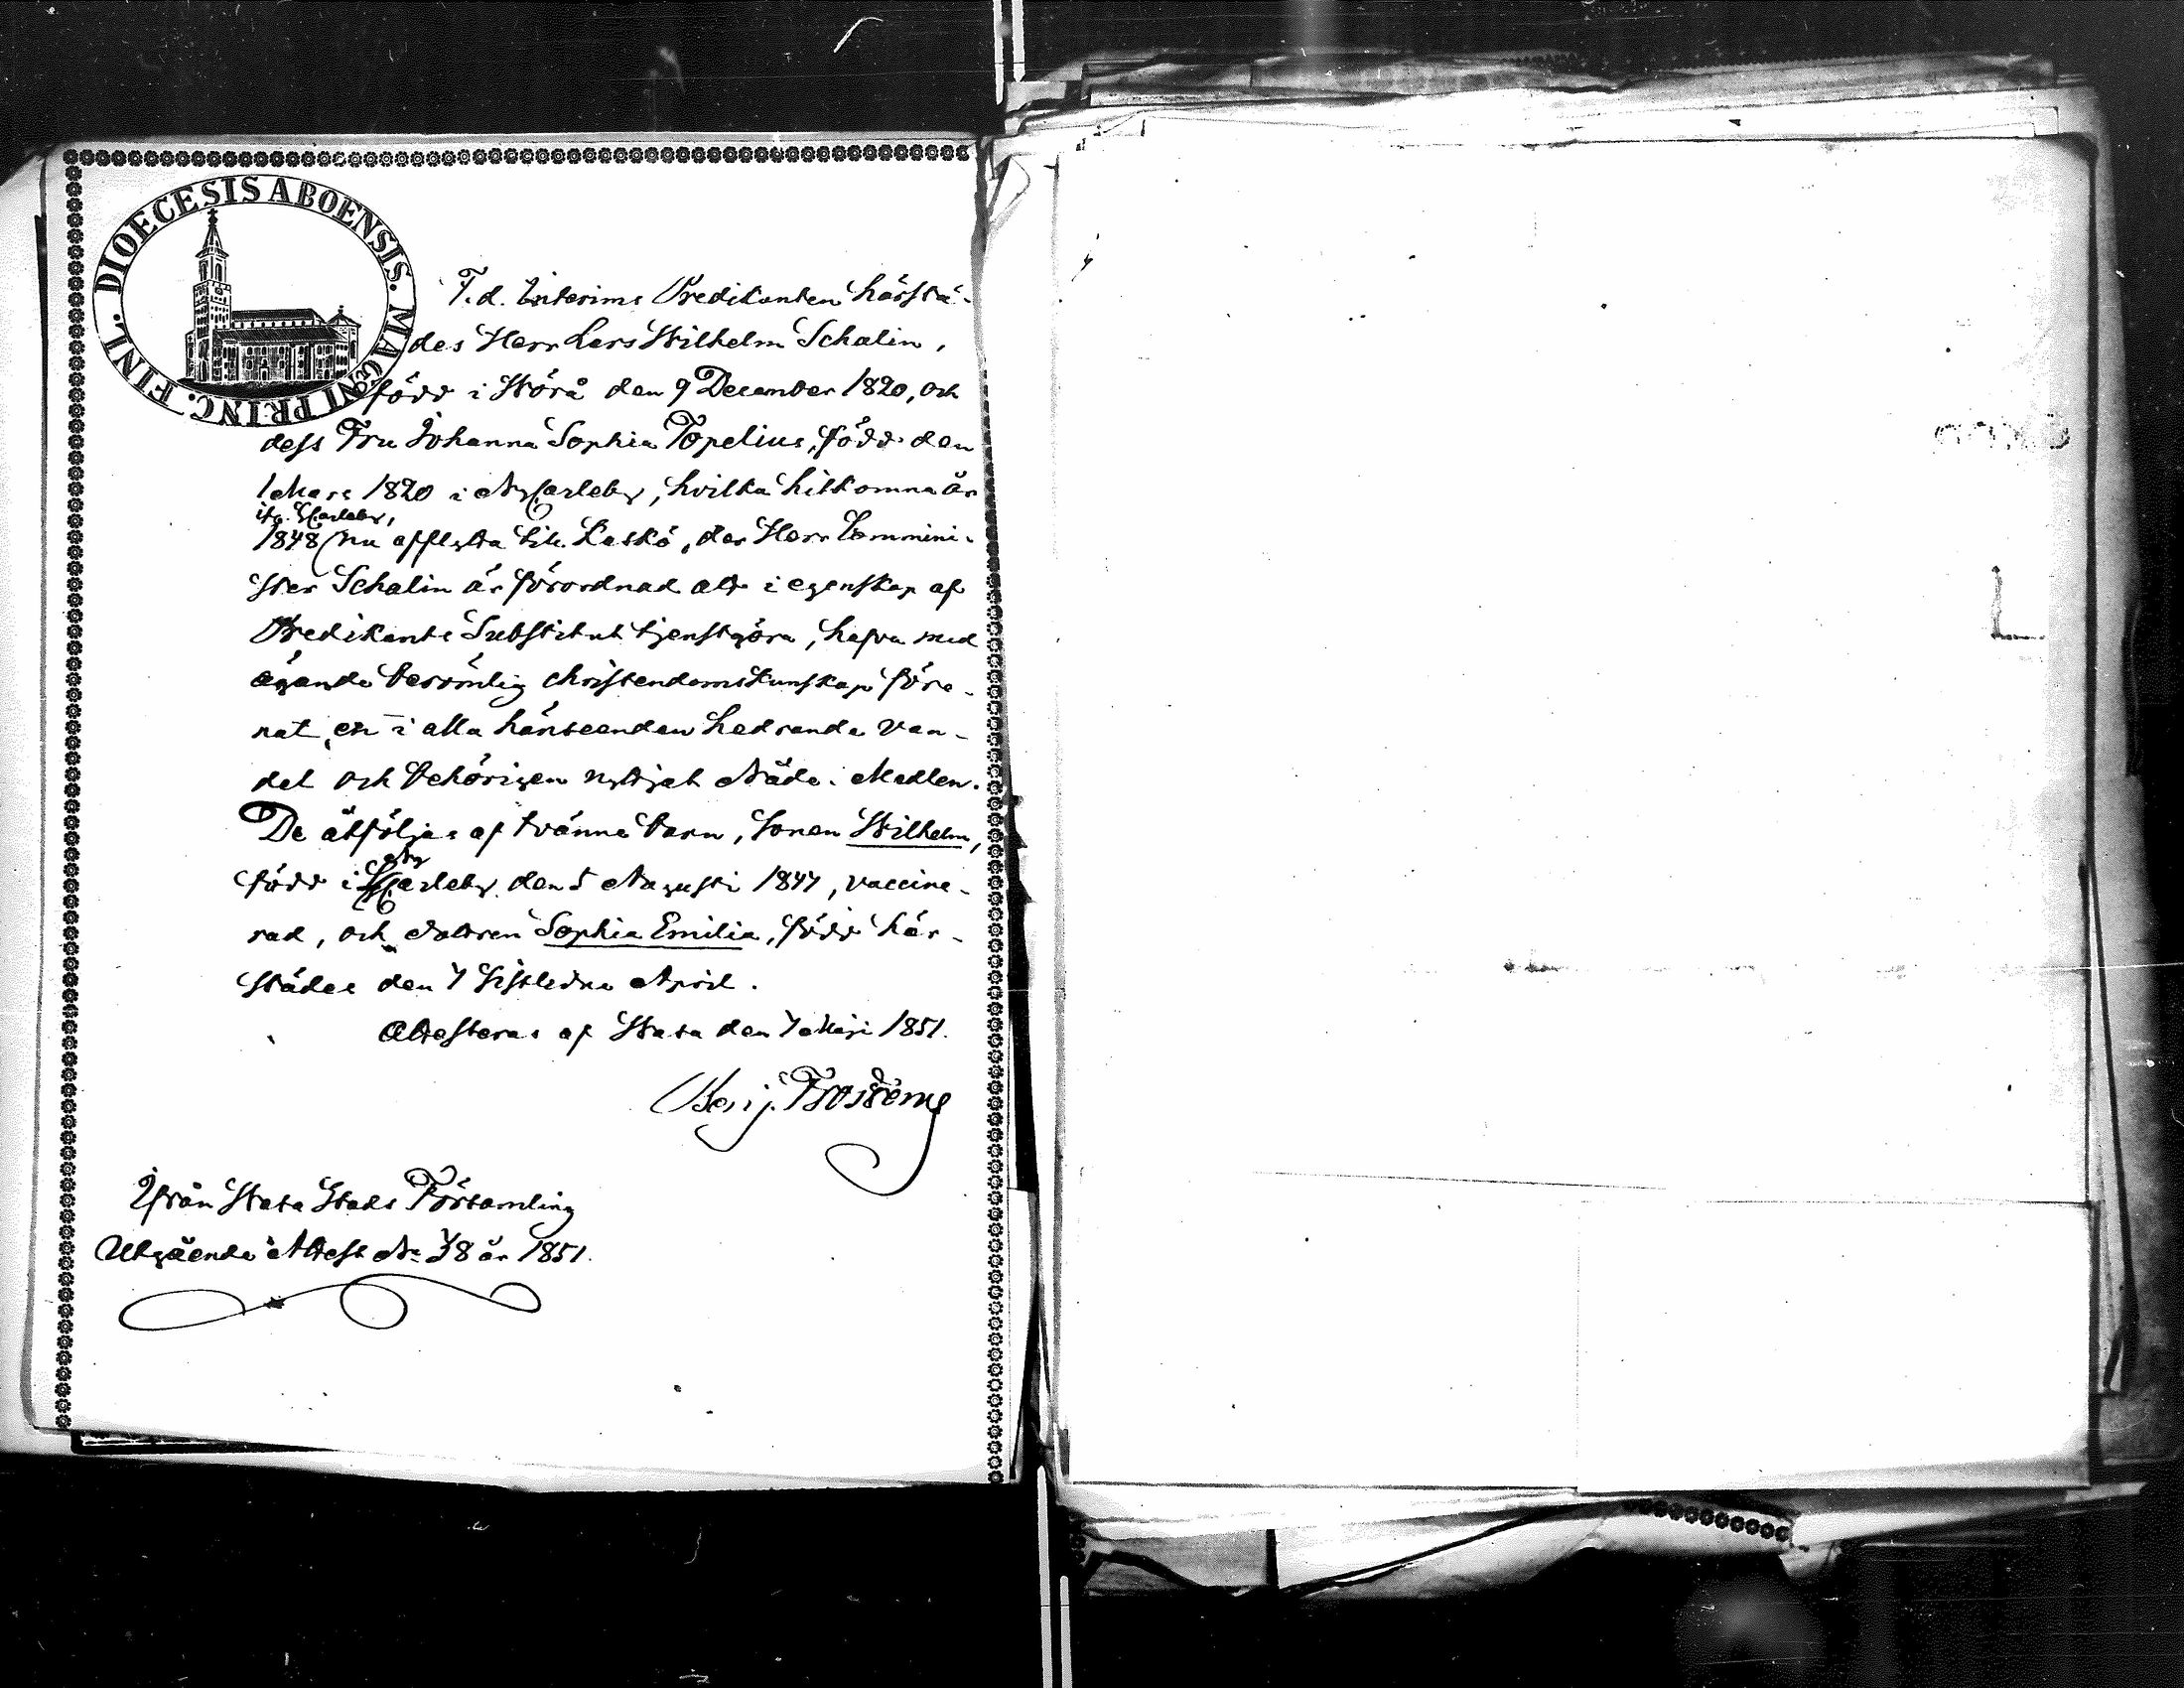 DIOECESIS ABOENSIS. MAGNI PRINC. FINL.
F. d. Interims Predikanten härstä-
des Herr Lars Wilhelm Schalin,
född i Vörå den 9 December 1820, och
dess Fru Johanna Sophia Topelius, född den
1 Mars 1820 i NyCarleby, hvilka hitkomna år
ifr. NCarleby,
1848 nu afflytta till Kaskö, der Herr Commini-
ster Schalin är förordnad att i egenskap af
Predikants Substitut tjenstgöra, hafva med
ägande berömlig christendomskunskap före-
nat en i alla hänseenden hedrande van-
del och behörigen nyttjat Nåde-Medlen.
De åtföljas af tvänne barn, sonen Wilhelm,
Ny
född i Carleby den 5 Augusti 1847, vaccine-
rad, och dottren Sophia Emilia, född här-
städes den 7 sistledne April.
Attesteras af Wasa den 7 Maji 1851.
Benj. Frosterus
Ifrån Wasa Stads Församling
Utgående Attest No 38 år 1851.